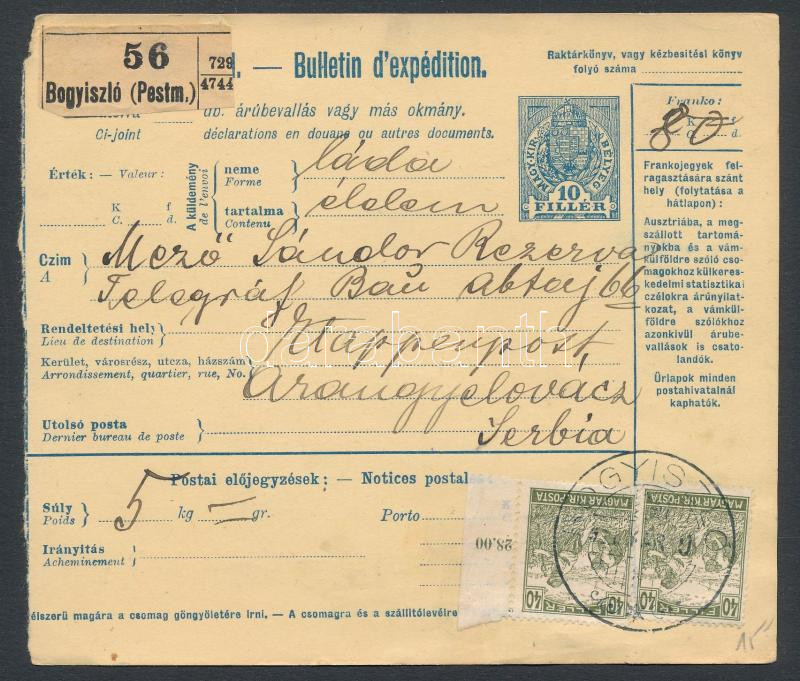 56
Bogyiszló (Pestm.)
729
4744
. — Bulletin d'expédition.
Raktárkönyv, vagy kézbesitési könyv
folyó száma
db. árúbevallás vagy más okmány.
Ci-joint déclarations en douane ou autres documents.
Érték: — Valeur:
K f
C. d.
A küldemény
de l'envoi
neme
Forme
láda
tartalma
Contenu
élelem
MAGY. KIR. BÉLYEG
10
FILLÉR
Franko:
K f
C. d.
80
Frankojegyek fel-
ragasztására szánt
hely (folytatása a
hátlapon):
Ausztriába, a meg-
szállott tartomá-
nyokba és a vám-
külföldre szóló cso-
magokhoz külkeres-
kedelmi statisztikai
czélokra árúnyilat-
kozat, a vámkül-
földre szólókhoz
azonkivül árube-
vallások is csato-
landók.
Űrlapok minden
postahivatalnál
kaphatók.
Czim
A
Mező Sándor Rezerva
Telegráf Bau abtaj 66
Rendeltetési hely
Lieu de destination
Etappenpost,
Kerület, városrész, utcza, házszám
Arrondissement, quartier, rue, No.
Arangyelovácz
Utolsó posta
Dernier bureau de poste
Serbia
darabanth
Postai előjegyzések: — Notices postal
Súly
Poids
5 kg — gr.
Porto
Irányitás
Acheminement
28.00
MAGYAR KIR. POSTA
40 FILLÉR 40
MAGYAR KIR. POSTA
40 FILLÉR 40
élszerü magára a csomag göngyöletére irni. — A csomagra és a szállitólevélre